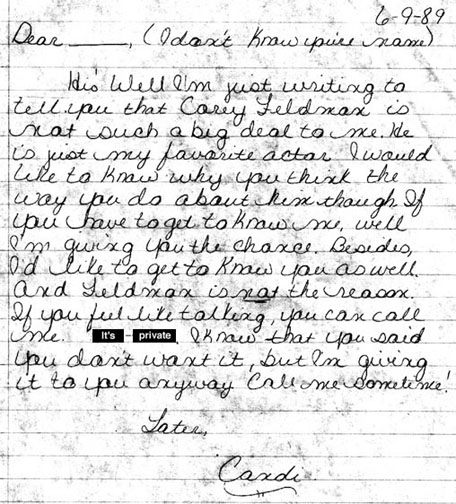 6-9-89
Dear ____, (I don't know you're name)
Hi! Well I'm just writing to
tell you that Corey Feldman is
not such a big deal to me. He
is just my favorite actor. I would
like to know why you think the
way you do about him though. If
you have to get to know me, well
I'm giving you the chance. Besides,
I'd like to get to know you as well.
And Feldman is not the reason.
If you feel like talking, you can call
me. It's - private, I know that you said
you don't want it, but I'm giving
it to you anyway. Call me sometime!
Later,
Candi